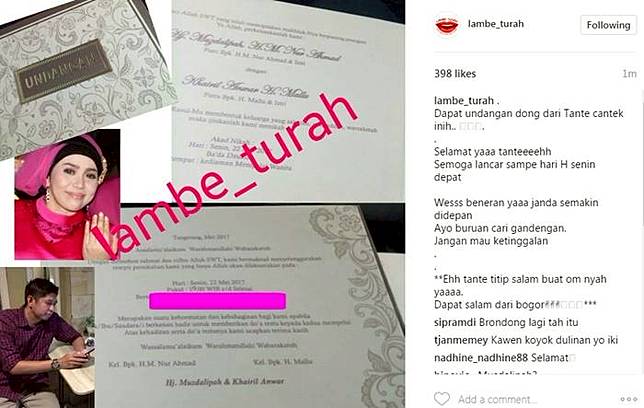 UNDANGAN
Ya Allah, perkenankanlah kami :
Hj. Muzdalipah, H.M. Nur Ahmad
Putri Bpk. H. M. Nur Ahmad & Istri
dengan
Khairil Anwar H. Mallu
Putra Bpk. H. Mallu & Istri
Akad Nikah
Hari : Senin, 22
lambe_turah
Tangerang, Mei 2017
Assalamu'alaikum Warahmatullahi Wabarakatuh
Hari : Senin, 22 Mei 2017
Pukul : 19.00 WIB s/d Selesai
Merupakan suatu kehormatan dan kebahagiaan bagi kami apabila
Wassalamu'alaikum Warahmatullahi Wabarakatuh
Kel. Bpk. H.M. Nur Ahmad
Kel. Bpk. H. Mallu
Hj. Muzdalipah & Khairil Anwar
lambe_turah
Following
398 likes
1m
lambe_turah .
Dapat undangan dong dari Tante cantek
inih.. .
.
Selamat yaaa tanteeeehh
Semoga lancar sampe hari H senin
depat
Wesss beneran yaaa janda semakin
didepan
Ayo buruan cari gandengan.
Jangan mau ketinggalan
.
.
**Ehh tante titip salam buat om nyah
yaaaa.
Dapat salam dari bogor ***
sipramdi Brondong lagi tah itu
tjanmemey Kawen koyok dulinan yo iki
nadhine_nadhine88 Selamat
Add a comment...